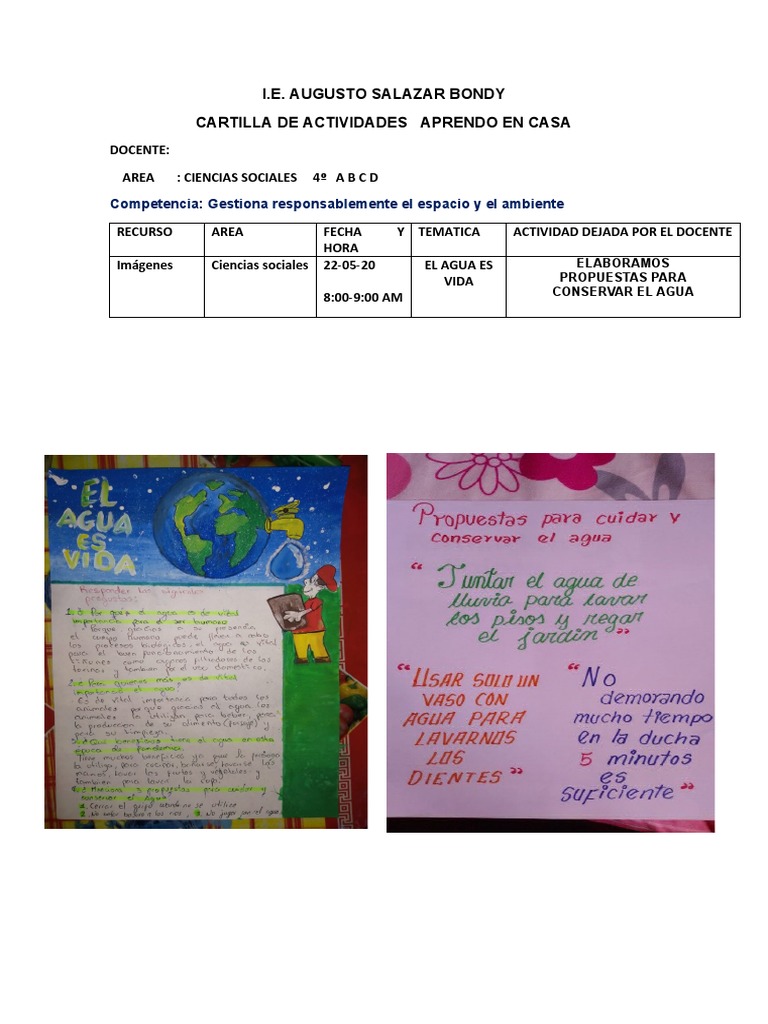 I.E. AUGUSTO SALAZAR BONDY
CARTILLA DE ACTIVIDADES APRENDO EN CASA
DOCENTE:
AREA : CIENCIAS SOCIALES 4º A B C D
Competencia: Gestiona responsablemente el espacio y el ambiente
RECURSO AREA FECHA Y HORA TEMATICA ACTIVIDAD DEJADA POR EL DOCENTE
Imágenes Ciencias sociales 22-05-20 8:00-9:00 AM EL AGUA ES VIDA ELABORAMOS PROPUESTAS PARA CONSERVAR EL AGUA
EL
AGUA
ES
VIDA
Responder las siguientes
preguntas:
1. ¿Por qué el agua es de vital
importancia para el ser humano
Porque gracias a su presencia
el cuerpo humano puede llevar a cabo
los procesos biológicos, el agua es vital
para el buen funcionamiento de los
riñones como órganos filtradores de las
toxinas y también por el uso doméstico.
2. ¿Para quienes más es de vital
importancia el agua?
Es de vital importancia para todos los
animales porque gracias al agua los
animales la utilizan para beber, para
la producción de su alimento (forraje) y
para su limpieza.
3. ¿Qué beneficios tiene el agua en esta
época de pandemia?
Tiene muchos beneficios ya que la persona
la utiliza, para cocinar, bañarse, lavarse las
manos, lavar las frutas y vegetales y
también para lavar la ropa.
propuestas para cuidar y
conservar el agua
1. Cerrar el grifo cuando no se utilice
2. No botar basura a los ríos, 3. No jugar con el agua
Propuestas para cuidar y
conservar el agua
"Juntar el agua de
lluvia para lavar
los pisos y regar
el jardín"
"USAR SOLO UN
VASO CON
AGUA PARA
LAVARNOS
LOS
DIENTES"
"No
demorando
mucho tiempo
en la ducha
5 minutos
es
suficiente"